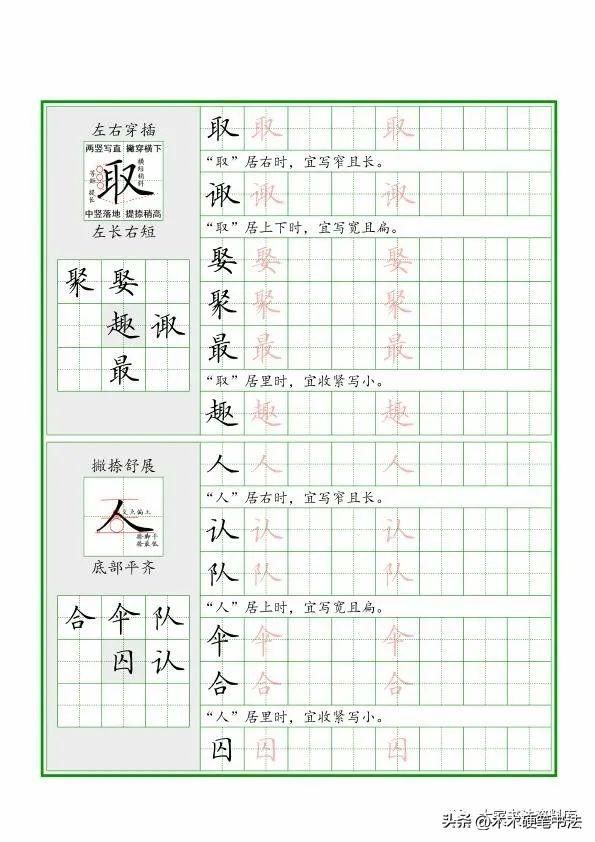 左右穿插
两竖写直 撇穿横下
等距 提长
取
横短稍斜
中竖落地 提捺稍高
左长右短
聚 娶
趣 诹
最
取 取 取
“取”居右时，宜写窄且长。
诹 诹 诹
“取”居上下时，宜写宽且扁。
娶 娶 娶
聚 聚 聚
最 最 最
“取”居里时，宜收紧写小。
趣 趣 趣
撇捺舒展
人
交点偏上
捺脚平
捺最低
底部平齐
合 伞 队
囚 认
人 人 人
“人”居右时，宜写窄且长。
认 认 认
队 队 队
“人”居上时，宜写宽且扁。
伞 伞 伞
合 合 合
“人”居里时，宜收紧写小。
囚 囚 囚
头条 @木木硬笔书法